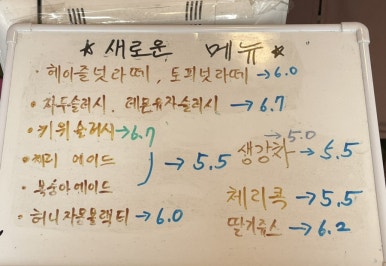 ★ 새로운 메뉴 ★
· 헤이즐넛라떼, 토피넛라떼 → 6.0
· 자두슬러시, 레몬유자슬러시 → 6.7
· 키위슬러시 → 6.7
· 체리 에이드
· 복숭아에이드
→ 5.5
· 허니자몽블랙티 → 6.0
→ 5.0
생강차 → 5.5
체리콕 → 5.5
딸기쥬스 → 6.2